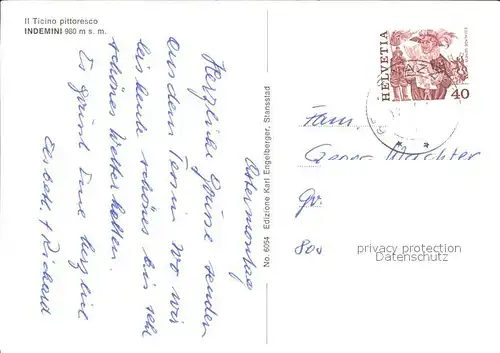 Il Ticino pittoresco
INDEMINI 980 m s. m.
Ostermontag
Herzliche Grüsse senden
aus dem Tessin wo wir
bis heute schönes bis sehr
schönes Wetter hatten.
Es grüsst Euch herzlich
+ Richard
No. 6054 Edizione Karl Engelberger, Stansstad
HELVETIA
40
Fam.
800
privacy protection
Datenschutz